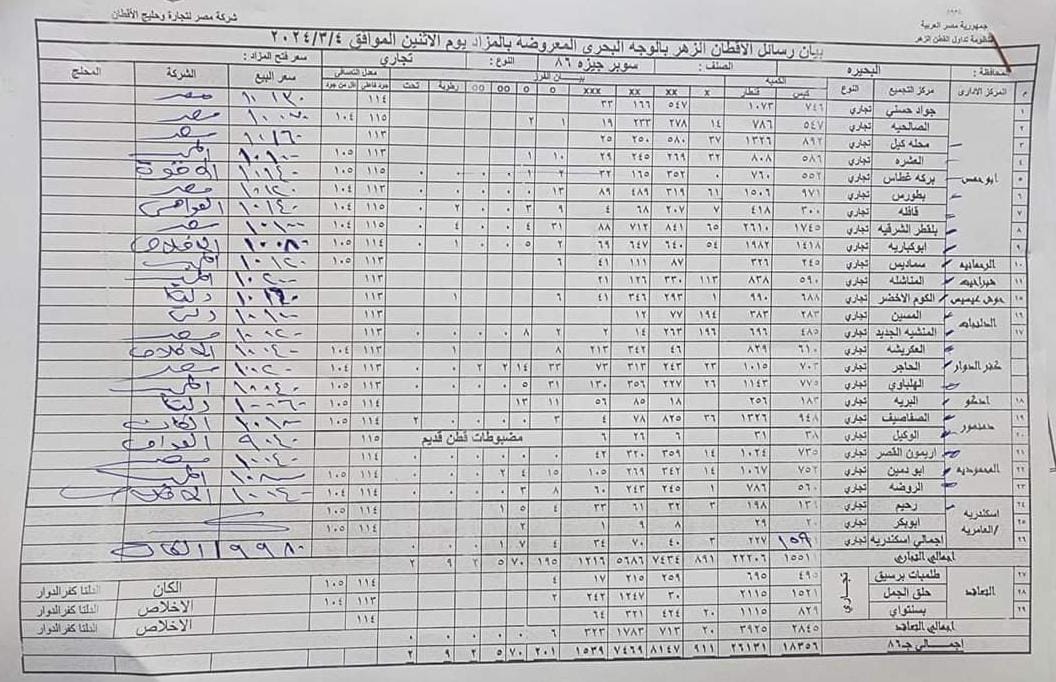 شركة مصر لتجارة وحليج الأقطان
جمهورية مصر العربية
منظومة تداول القطن الزهر
بيان رسائل الاقطان الزهر بالوجه البحرى المعروضه بالمزاد يوم الاثنين الموافق ٢٠٢٤/٣/٤
المحافظة : البحيره الصلف : سوبر جيزه ٨٦ النوع : تجاري سعر فتح المزاد :
م المركز الادارى مركز التجميع النوع الكميه بيـــان الفرز معدل التصافى سعر البيع الشركة المحلج
كيس قنطار x xx xx xxx o o oo oo رطوبة تحت
١ ابوحمص جواد حسني تجاري ٧٤٦ ١٠٧٣ ٥٤٧ ١٦٦ ٣٣ ١١٤ ١٠١٣٠ مصر
٢ الصالحيه تجاري ٥٤٧ ٧٨٦ ١٤ ٢٧٨ ٢٣٣ ١٩ ١ ٢ ١١٥ ١٠٤ مصر
٣ محله كيل تجاري ٨٩٢ ١٣٢٦ ٣٧ ٥٨٠ ٢٥٠ ٢٥ ١١٣ ١٠١٦٠ مصر
٤ العشره تجاري ٥٨٦ ٨٠٨ ٣٢ ٢٦٩ ٢٤٥ ٢٩ ١٠ ١ ١١٣ ١٠٥ ١٠١٠٠
٥ بركه غطاس تجاري ٥٥٢ ٧٦٠ ٠ ٣٥٢ ١٦٥ ٣٢ ٢ ١ ٠ ٠ ٠ ٠ ١١٥ ١٠٥ ١٠١٤٠
٦ بطورس تجاري ٩٧١ ١٥٠٦ ٦١ ٣١٩ ٤٨٩ ٨٩ ١٣ ٠ ٠ ٠ ٠ ٠ ١١٣ ١٠٤ ١٠١٢٠ مصر
٧ قافله تجاري ٣٠٠ ٤١٨ ٧ ٢٠٧ ٦٨ ٤ ٩ ٣ ٠ ٠ ٢ ٠ ١١٥ ١٠٤ ١٠١٤٠
٨ بلقطر الشرقيه تجاري ١٧٤٥ ٢٦١٠ ٦٥ ٨٤١ ٧١٢ ٨٨ ٣١ ٤ ٠ ٠ ٤ ٠ ١١٥ ١٠٤ ١٠١٠٠ مصر
٩ ابوكباريه تجاري ١٤١٨ ١٩٨٢ ٥٤ ٦٤٠ ٦٤٧ ٦٩ ٢ ٥ ٠ ٠ ١ ٠ ١١٤ ١٠٥ ١٠٠٨٠ الاخلاص
١٠ الرحمانيه سماديس تجاري ٢٤٥ ٣٢٦ ٨٧ ١١١ ٤١ ٦ ١١٣ ١٠٥ ١٠١٢٠
١١ شبراخيت المناشله تجاري ٥٩٠ ٨٣٨ ١١٣ ٣٣٠ ١٢٦ ٢١ ١١٣ ١٠٢٠٠
١٥ حوش عيسيس الكوم الاخضر تجاري ٦٨٨ ٩٩٠ ١ ٢٩٣ ٣٤٦ ٤١ ٦ ١ ١١٣ دلتا
١٦ الدلنجات المسين تجاري ٢٨٣ ٣٨٣ ١٩٤ ٧٧ ١٢ ١١٣ ١٠١٠٠ دلتا
١٧ المنشيه الجديد تجاري ٤٨٥ ٦٩٦ ١٩٦ ٢٦٣ ١٤ ٢ ٢ ٨ ٠ ٠ ٠ ٠ ١١٣ ١٠١٢٠ مصر
كفر الدوار العكريشه تجاري ٦١٠ ٨٢٩ ٤٦ ٣٤٢ ٢١٣ ٨ ١ ١١٣ ١٠٤ ١٠٠٤٠ الاخلاص
الحاجر تجاري ٧٠٣ ١٠١٥ ٢٣ ٢٤٣ ٣١٣ ٧٣ ٣٣ ١٤ ٢ ٢ ٠ ٠ ١١٣ ١٠٤ ١٠٢٠ مصر
الهلباوي تجاري ٧٧٥ ١١٤٣ ٢٦ ٢٢٧ ٣٥٦ ١٣٠ ٣١ ٥ ٠ ٠ ٠ ٠ ١١٤ ١٠٥ ١٠٠٤٠
١٨ ادكو البريه تجاري ١٨٣ ٢٥٦ ١٨ ٨٥ ٥٦ ١١ ١٣ ١١٤ ١٠٥ ١٠٠٠٦٠ دلتا
١٩ دمنهور الصفاصيف تجاري ٩٤٨ ١٣٢٦ ٣٦ ٨٢٥ ٧٨ ٤ ٣ ٠ ٠ ٠ ٠ ٢ ١١٤ ١٠٥ الكان
٢٠ الوكيل تجاري ٣٨ ٣١ ٦ ٢٦ ٦ مضبوطات قطن قديم ١١٥ ٩٠٤٠
٢١ المحموديه اريمون القصر تجاري ٧٣٥ ١٠٢٤ ١٤ ٣٥٩ ٣٢٠ ٤٢ ٠ ٠ ٠ ٠ ٠ ٠ ١١٤ ١٠٠٤٠ مصر
٢٢ ابو دمين تجاري ٧٥٢ ١٠٦٧ ١٤ ٣٤٢ ٢٦٩ ١٠٥ ١٥ ٤ ٢ ٠ ٠ ٠ ١١٤ ١٠٥
٢٣ الروضه تجاري ٥٦٠ ٧٨٦ ١ ٢٤٥ ٢٤٣ ٦٠ ٨ ٣ ٠ ٠ ٠ ٠ ١١٤ ١٠٤ ١٠٠٤٠ الاخلاص
٢٤ اسكندريه /العامريه رحيم تجاري ١٣٦ ١٩٨ ٣ ٣٢ ٦١ ٣٣ ٤ ٥ ١ ١١٤ ١٠٥
٢٥ ابوبكر تجاري ٢٠ ٢٩ ٨ ٩ ١ ٢ ١١٤ ١٠٥
٢٦ اجمالي اسكندريه تجاري ١٥٩ ٢٢٧ ٣ ٤٠ ٧٠ ٣٤ ٤ ٧ ١ ٠ ٠ ٠ ٩٩٨٠ الكان
اجمالى التجارى ١٥٥١ ٢٢٢٠٦ ٨٩١ ٧٤٣٤ ٥٦٨٦ ١٢١٦ ١٩٥ ٧٠ ٥ ٢ ٩ ٢
٢٧ التعاقد طلمبات برسيق تجـــارى ٤٩٥ ٦٩٠ ٢٥٩ ٢١٥ ١٧ ٤ ١١٤ ١٠٥ الكان الدلتا كفر الدوار
٢٨ حلق الجمل ١٥٢١ ٢١١٥ ٣٠ ١٢٤٧ ٢٤٢ ٢ ١١٣ ١٠٤ الاخلاص الدلتا كفر الدوار
٢٩ بسنتواي ٨٢٩ ١١١٥ ٢٠ ٤٢٤ ٣٢١ ٦٤ ١١٤ الاخلاص الدلتا كفر الدوار
اجمالى التعاقد ٢٨٤٥ ٣٩٢٥ ٢٠ ٧١٣ ١٧٨٣ ٣٢٣ ٦ ٠ ٠ ٠ ٠ ٠
إجمـــالى جـ٨٦ ١٨٣٥٦ ٢٦١٣١ ٩١١ ٨١٤٧ ٧٤٦٩ ١٥٣٩ ٢٠١ ٧٠ ٥ ٢ ٩ ٢